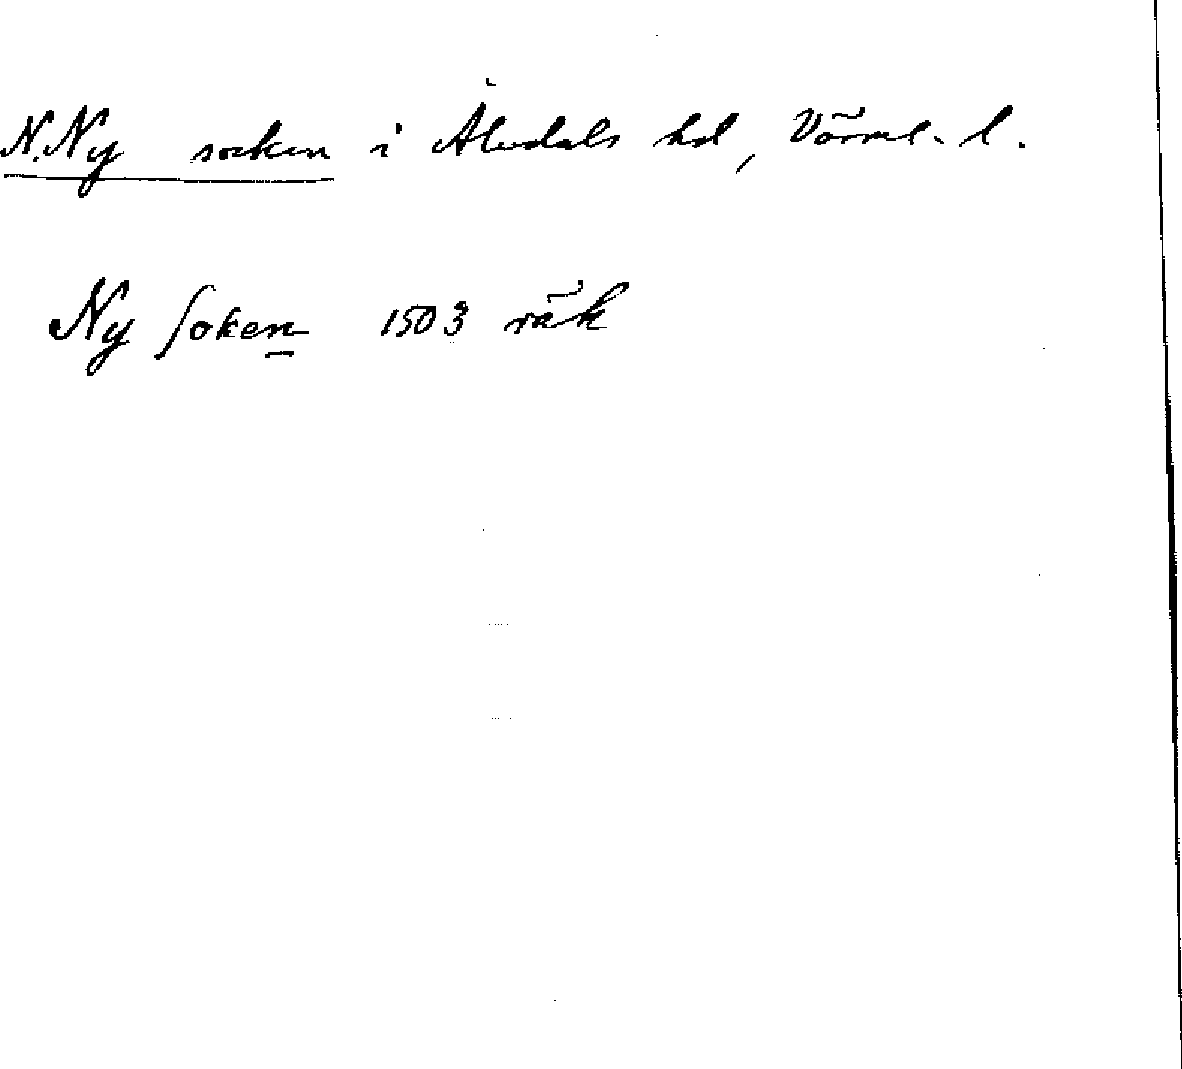 N.Ny socken i Älvdals hd, Värml. l.
Ny ſoken 1503 räk